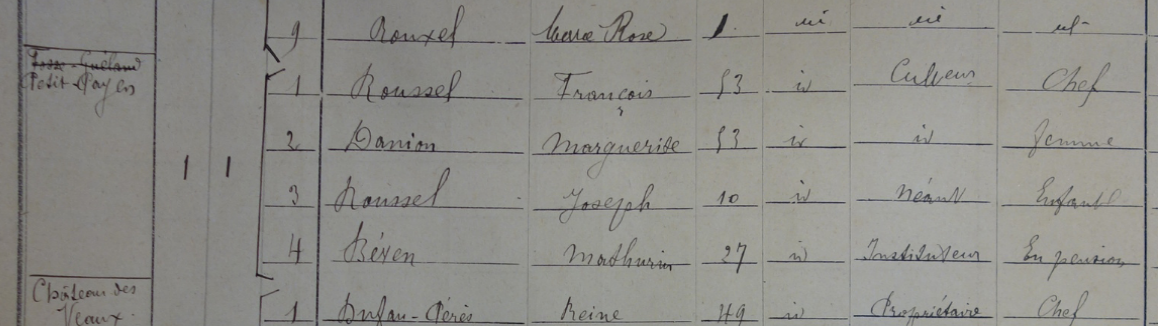 9 Rouxel Marie Rose 1 id id id
Fosse-Guéland
Petit-Payen
1 1
1 Roussel François 53 id Culteur Chef
2 Danion Marguerite 53 id id femme
3 Roussel Joseph 10 id Néant Enfant
4 Béven Mathurin 27 id Instituteur En pension
Château des
Veaux.
1 Reine 49 id Propriétaire Chef